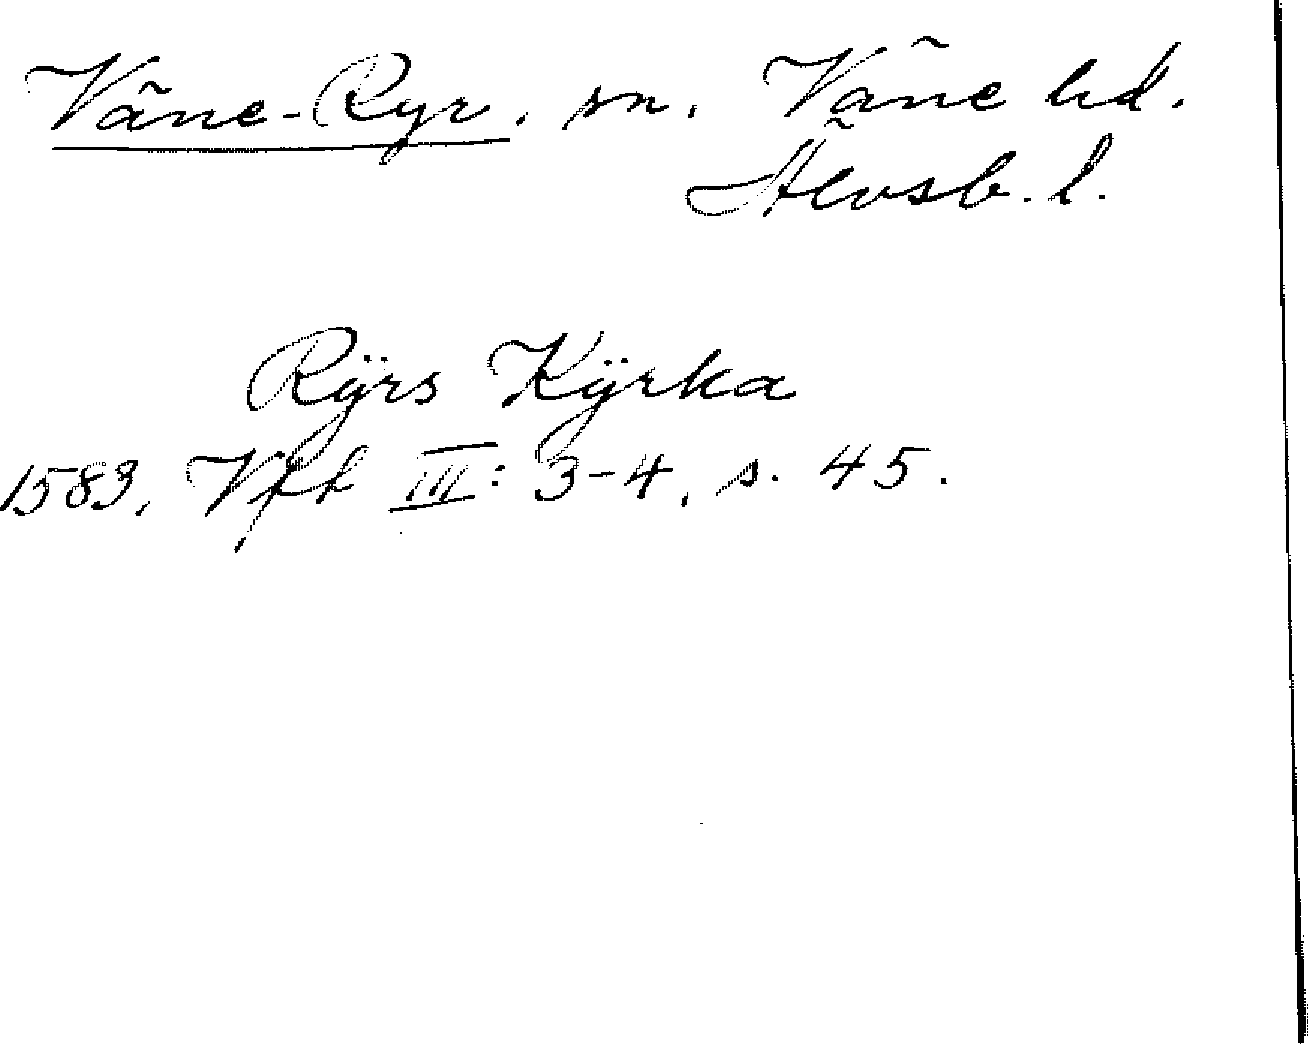 Väne-Ryr. sn. Väne hd.
Älvsb. l.
Rÿrs Kÿrka
1583. Vfh III: 3-4, s. 45.